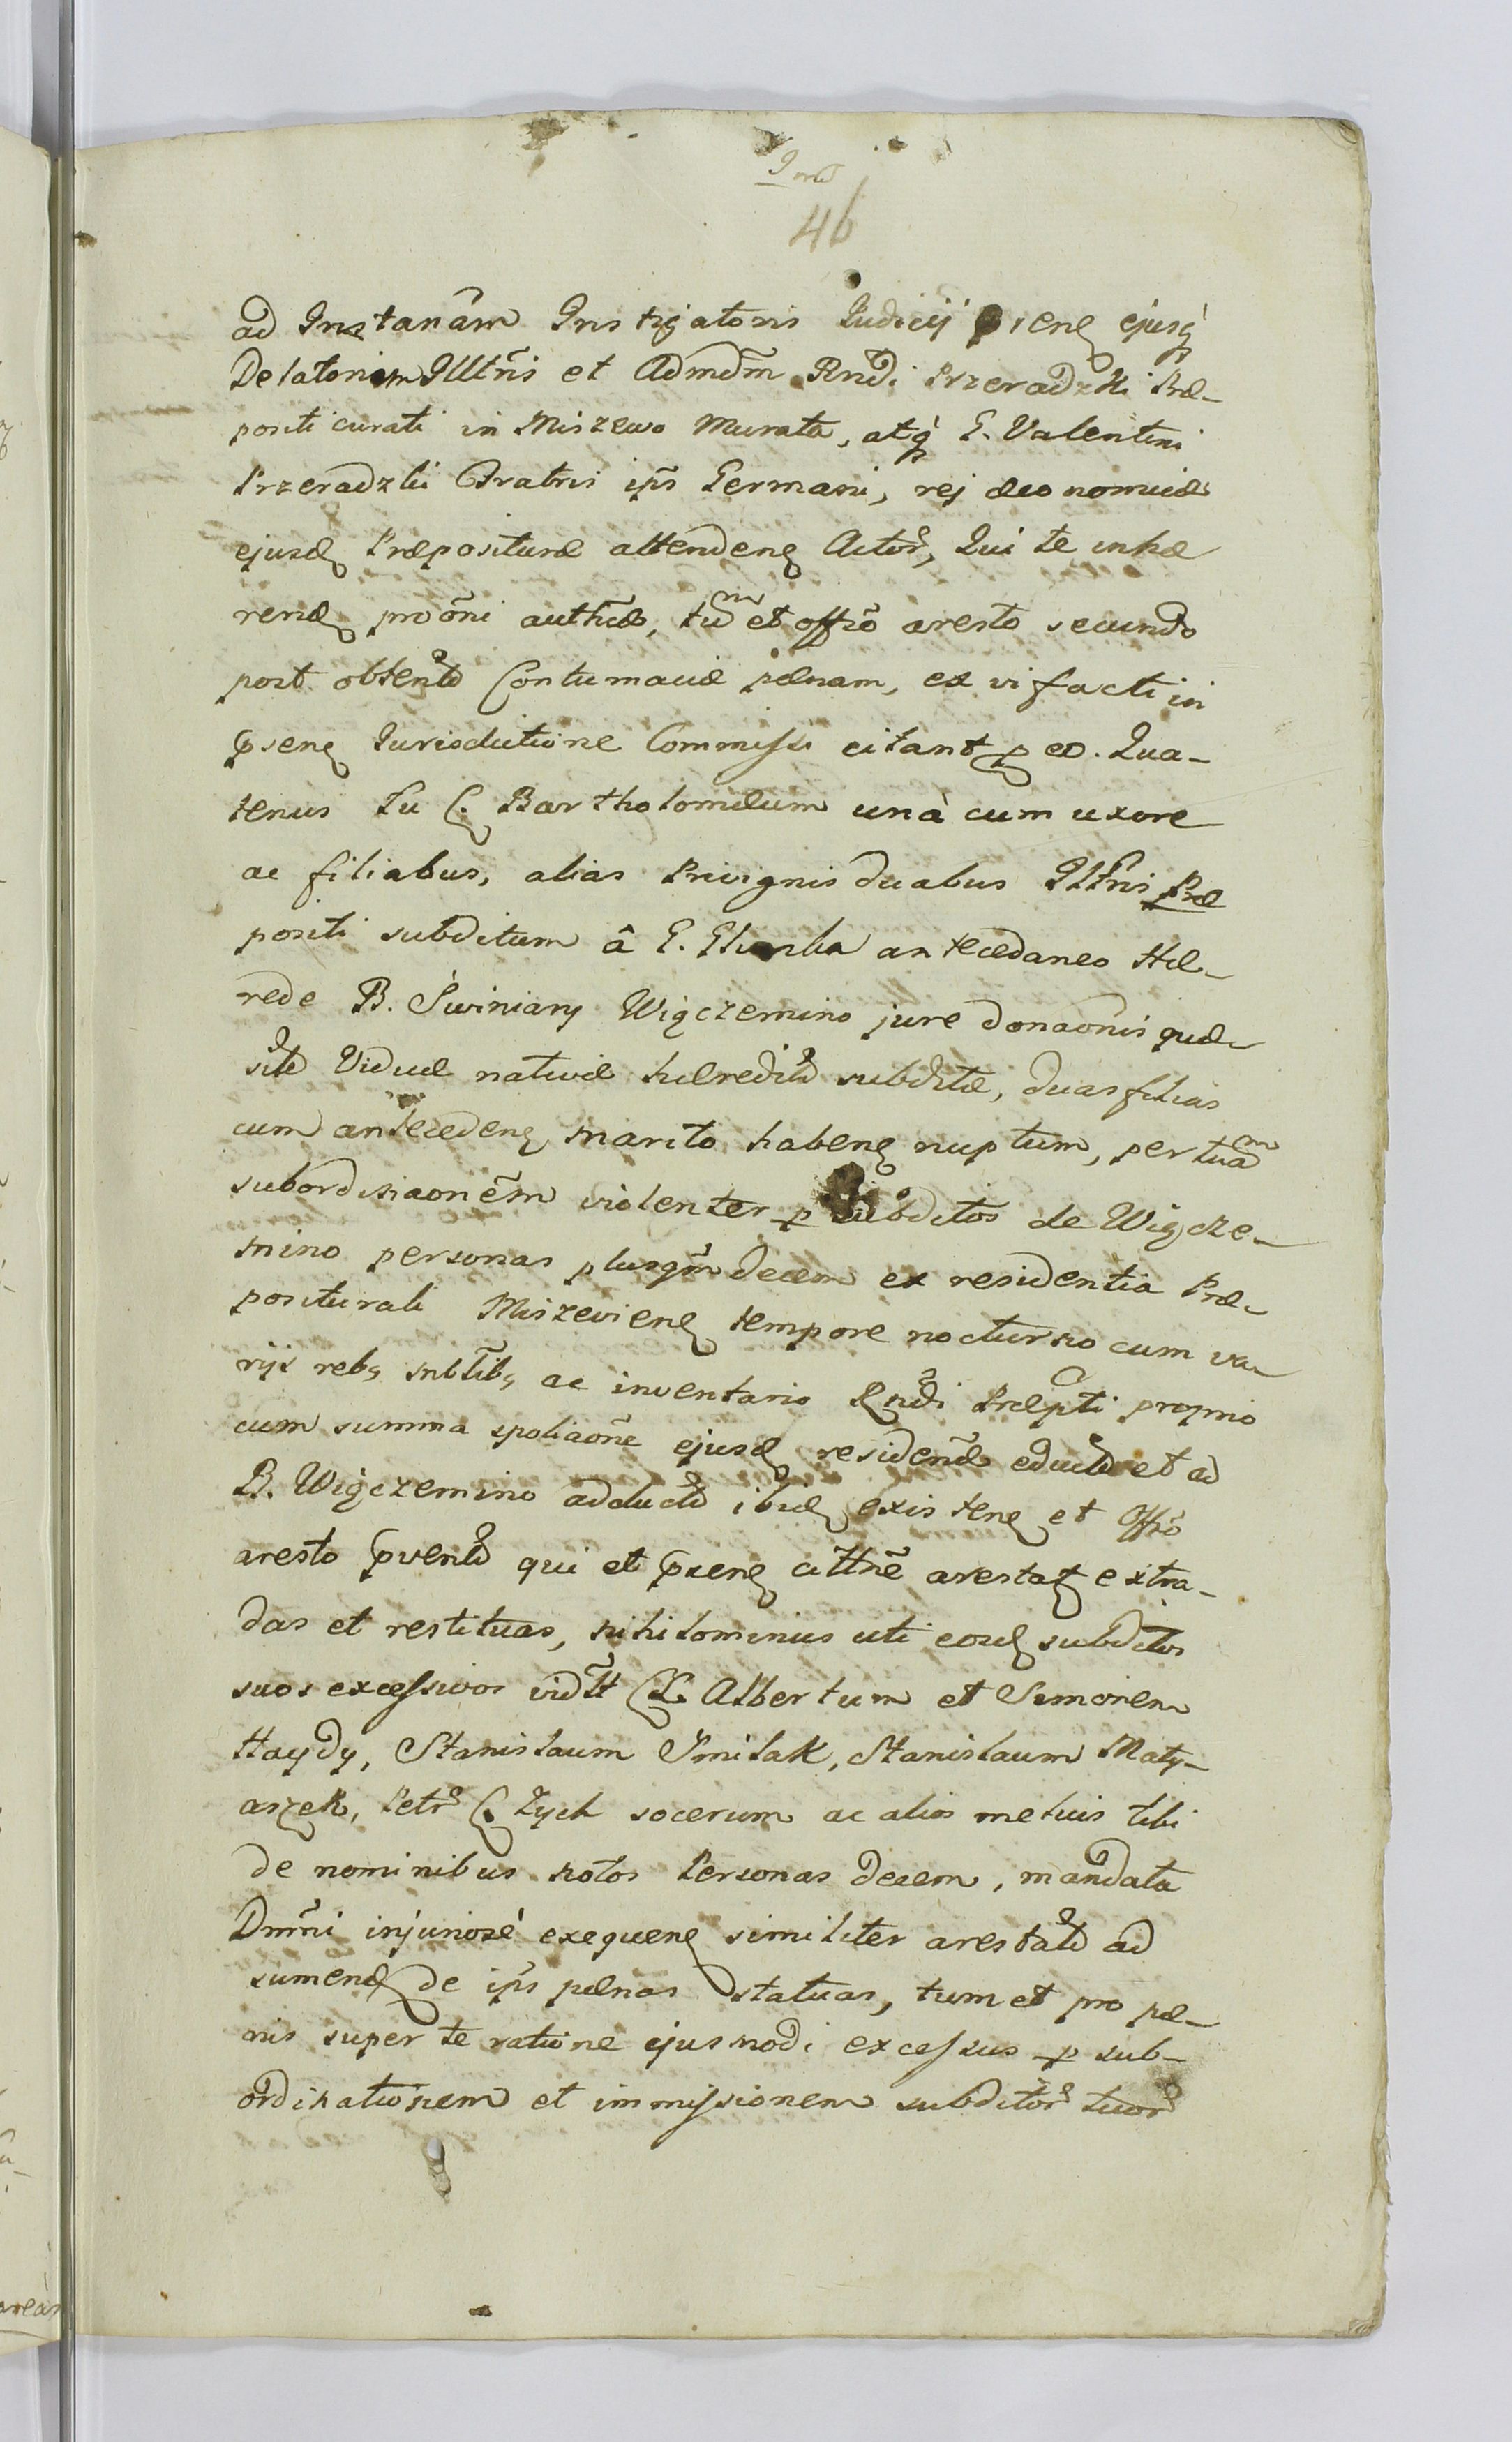 46
ad Instanãm Instigatoris Judicij pñeñ ejusq̃
Delatorum Illtris et Admdm Rndi Przeradzki Præ-
positi curati in Miszewo Murata, atq̃ G. Valentini
Przeradzki Fratris ips Germani, rej æconomicæ
ejusd Præposituræ attendeñ Actor, Qui te inhæ
rend pro oni authte, tum et offio aresto secundo
post obtent Contumaciæ pœnam, ex vi facti in
pseñ Jurisdictione Commissi citant p eo. Qua-
tenus Tu L. Bartholomæum unà cum uxore
ac filiabus, alias Privignis duabus Illtris Præ
positi subditum â G. antecedaneo Hæ-
rede B. Swiniary Wiączemino jure donaonis quæ-
sit Viduæ nativæ hæredit subditæ, duas filias
cum antecedeñ marito habeñ nuptum, per tuam
subordinaonem violenter p subditos de Wiącze-
mino personas plusqm decem ex residentia Præ-
positurali Miszevieñ tempore nocturno cum va-
rijs rebq mbilibq ac inventario Rndi Præpti proprio
cum summa spoliaone ejusd residentæ educt et ad
B. Wiączemino adduct ibid existeñ et Offio
aresto pvent qui et pseñ cittne arestat extra-
das et restituas, nihilominus uti eosd subditos
suos excessivos vidtt LL. Albertum et Simonem
Haydy, Stanislaum Smilak, Stanislaum Maty-
aszek, Petr L. Zych socerum ac alios melius tibi
de nominibus notos Personas decem, mandata
Dmni injuriosè exequeñ similiter arestat ad
sumend de ips pœnas statuas, tum et pro pœ-
nis super te ratione ejusmodi excessus p sub-
ordinationem et immissionem subditor tuor